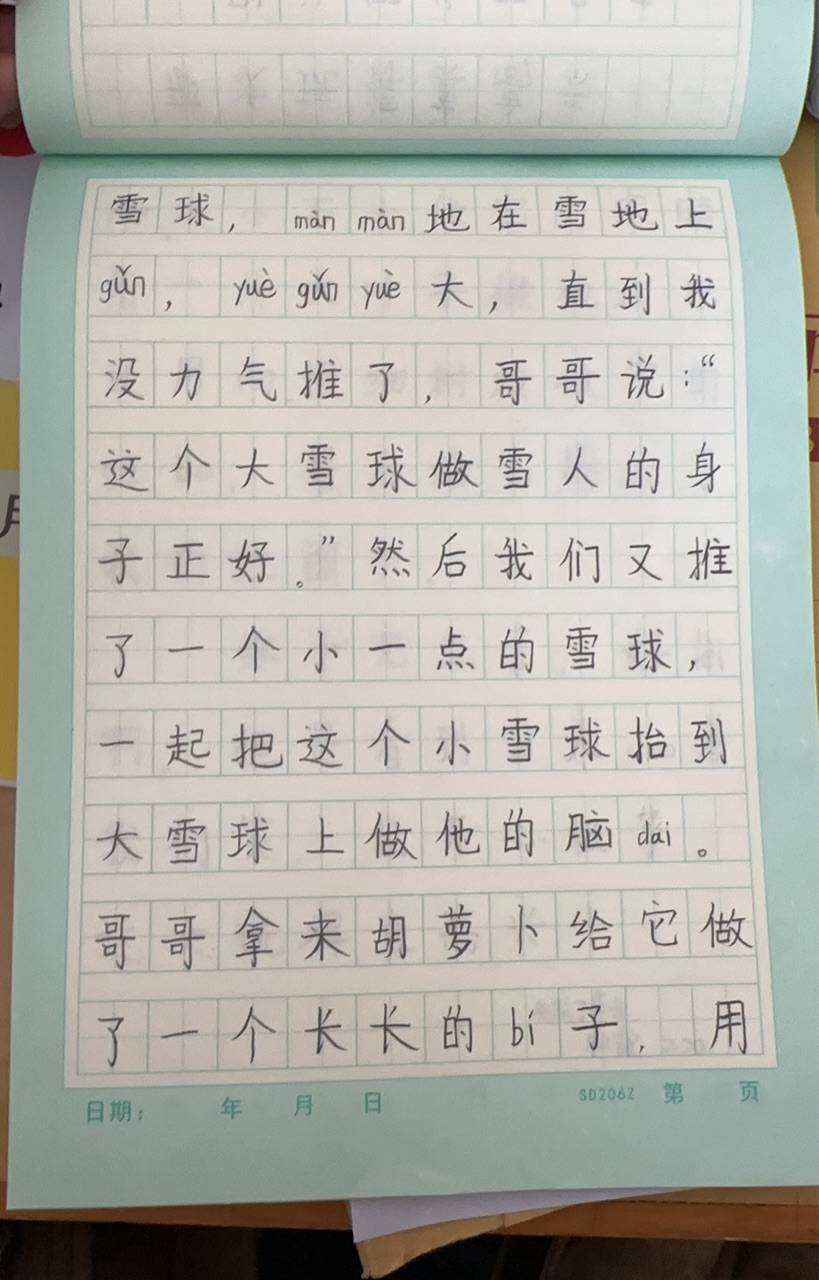 雪球，màn màn地在雪地上
gǔn，yuè gǔn yuè大，直到我
没力气推了，哥哥说：“
这个大雪球做雪人的身
子正好。”然后我们又推
了一个小一点的雪球，
一起把这个小雪球抬到
大雪球上做他的脑dai。
哥哥拿来胡萝卜给它做
了一个长长的bí子，用
日期： 年 月 日 SD206Z 第 页